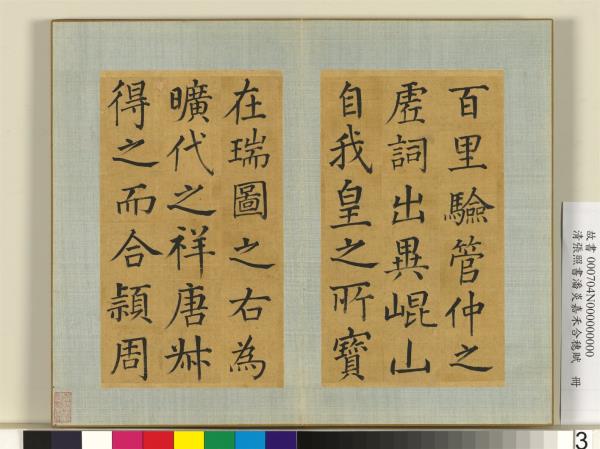 百里驗管仲之
虛詞出異崐山
自我皇之所寶
在瑞圖之右為
曠代之祥唐叔
得之而合穎周
故書 000704N000000000
清張照書潘炎嘉禾合穗賦 冊
3